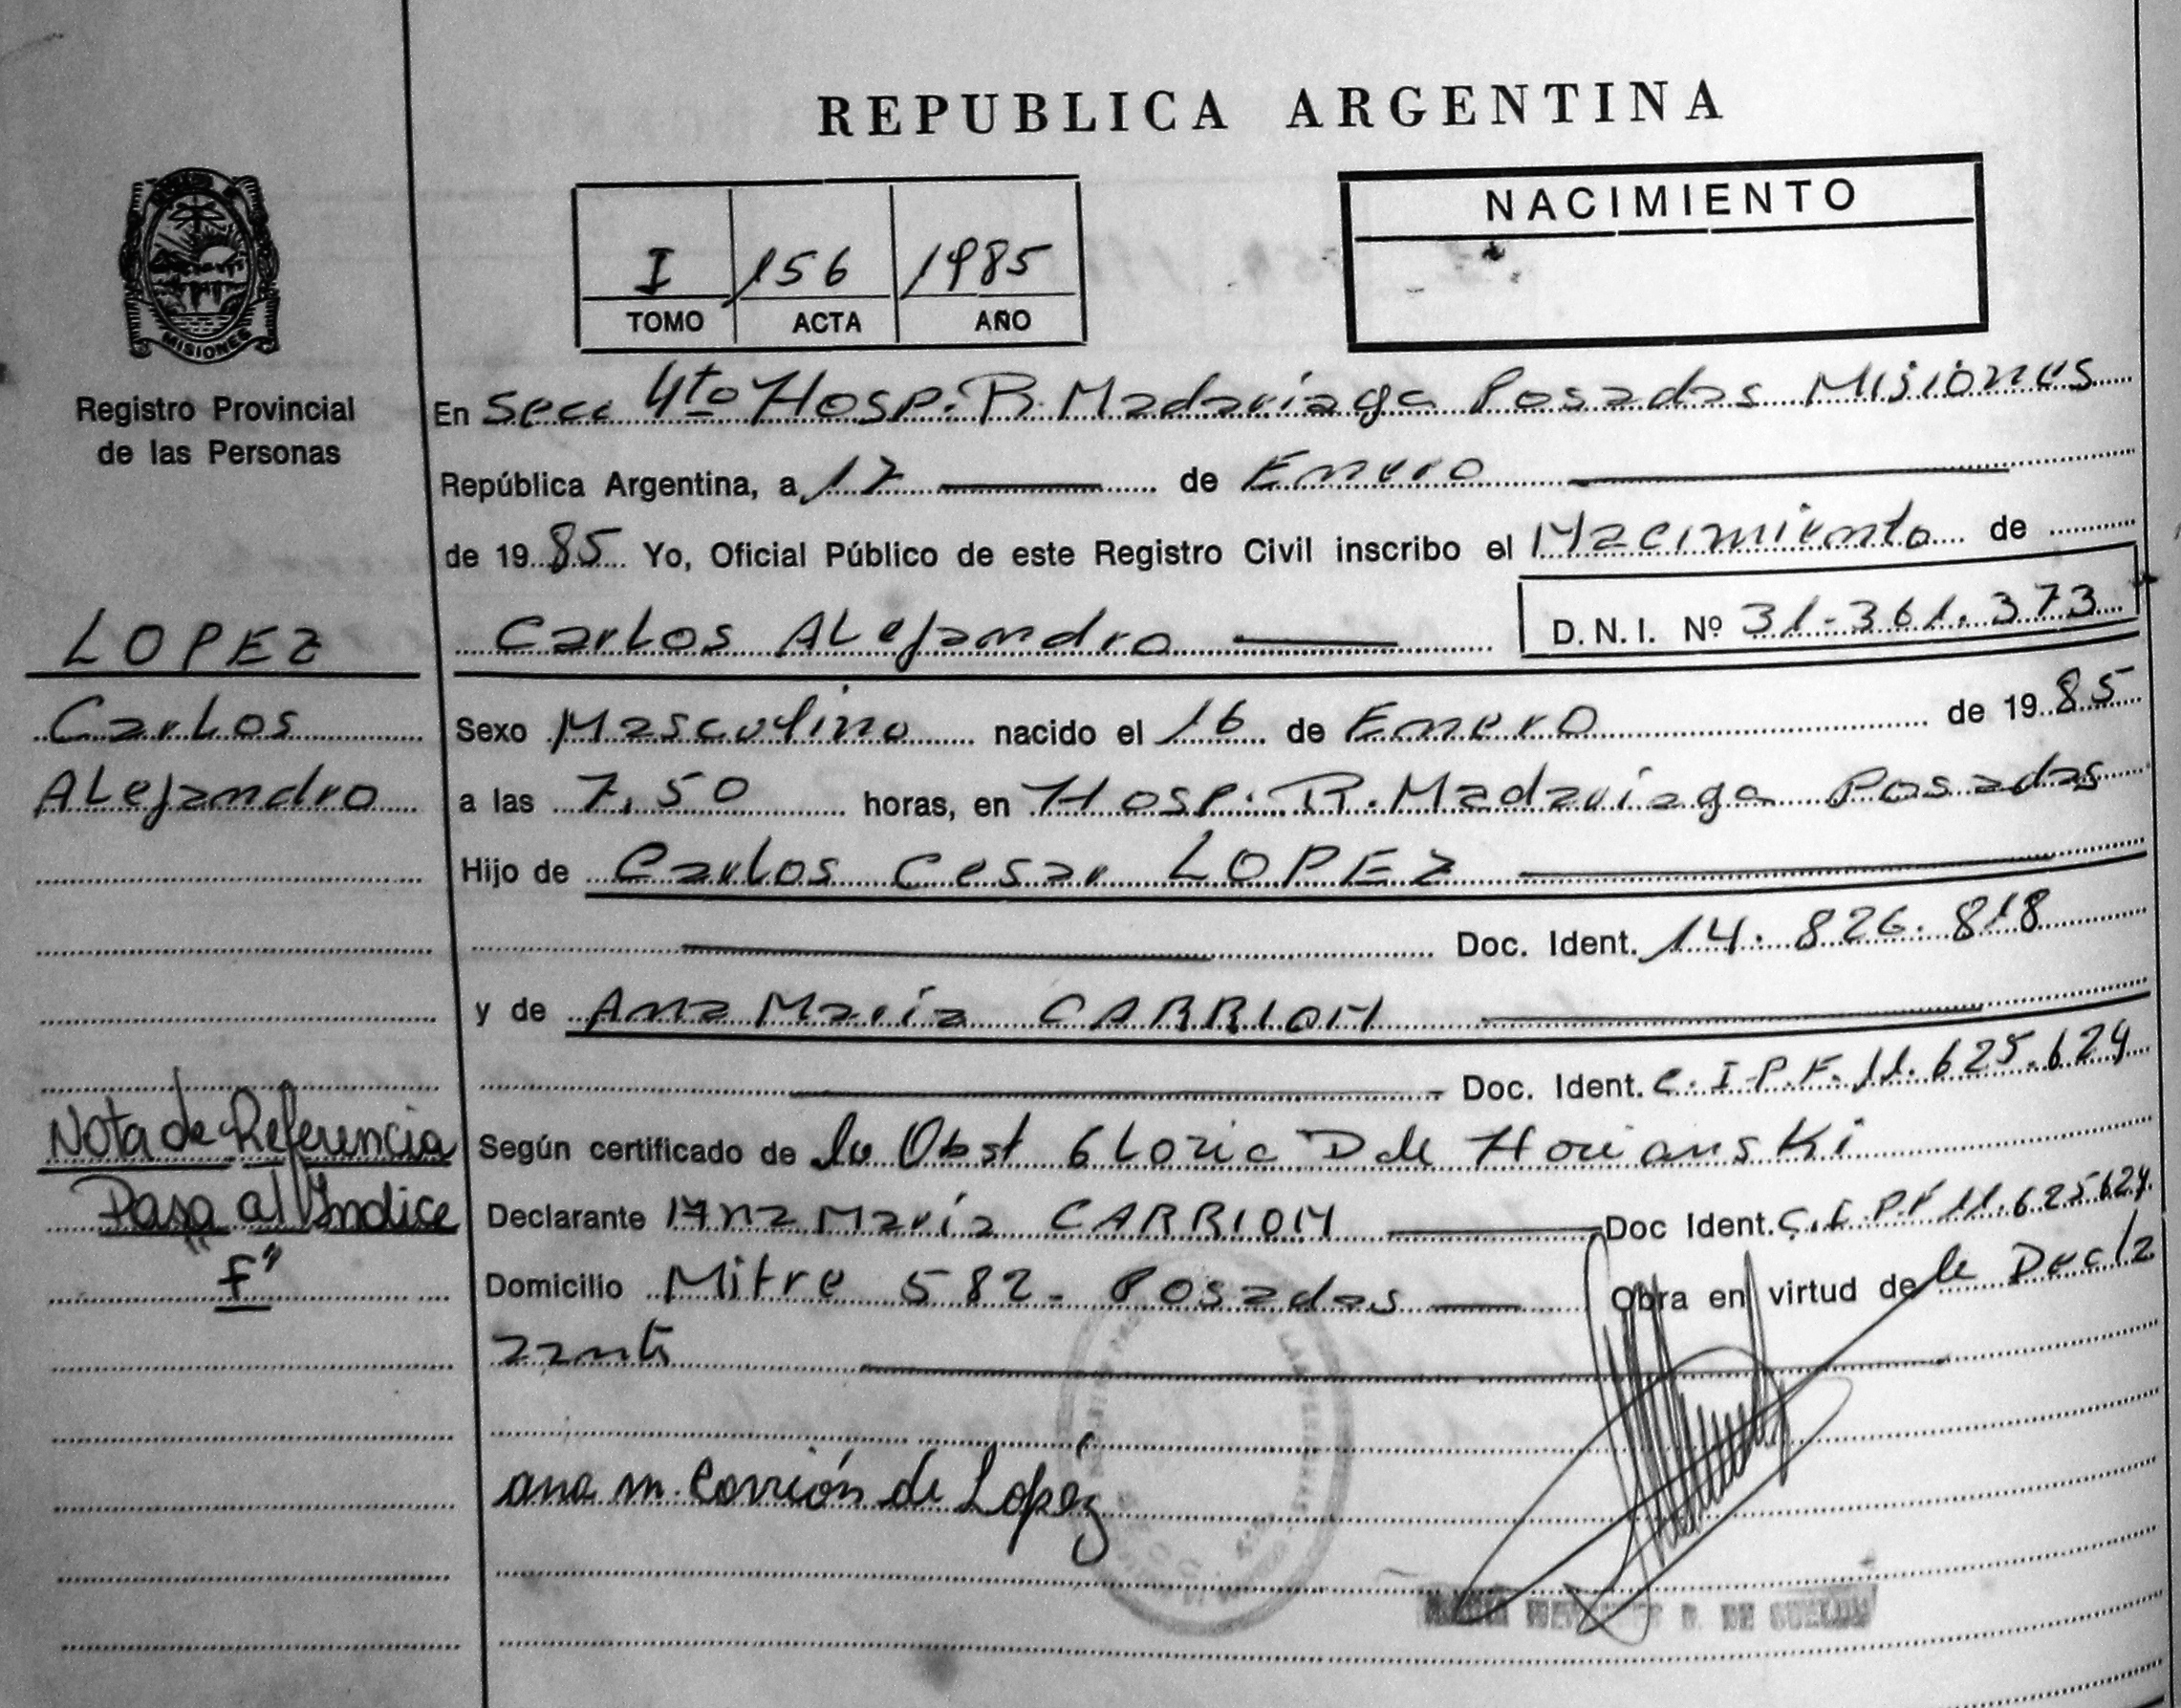 REPUBLICA ARGENTINA
NACIMIENTO
I 156 1985
TOMO ACTA AÑO
MISIONES
Registro Provincial
de las Personas
En Secc 4to Hosp. R. Madariaga Posadas Misiones
República Argentina, a 17 de Enero
de 1985 Yo, Oficial Público de este Registro Civil inscribo el Nacimiento de
LOPEZ
Carlos Alejandro D.N.I. Nº 31-361.373
Carlos
Sexo Masculino nacido el 16 de Enero de 1985
Alejandro
a las 7,50 horas, en Hosp. R. Madariaga Posadas
Hijo de Carlos Cesar LOPEZ
Doc. Ident. 14.826.818
y de Ana María CARRION
Doc. Ident. C.I.P.F. 11.625.624
Nota de Referencia
Según certificado de la Obst Gloria D de
Pasa al Indice
Declarante Ana María CARRION Doc Ident. C.I.P.F 11.625.624
"F"
Domicilio Mitre 582- Posadas Obra en virtud de le Decla
rante
ana m. Carrión de Lopez